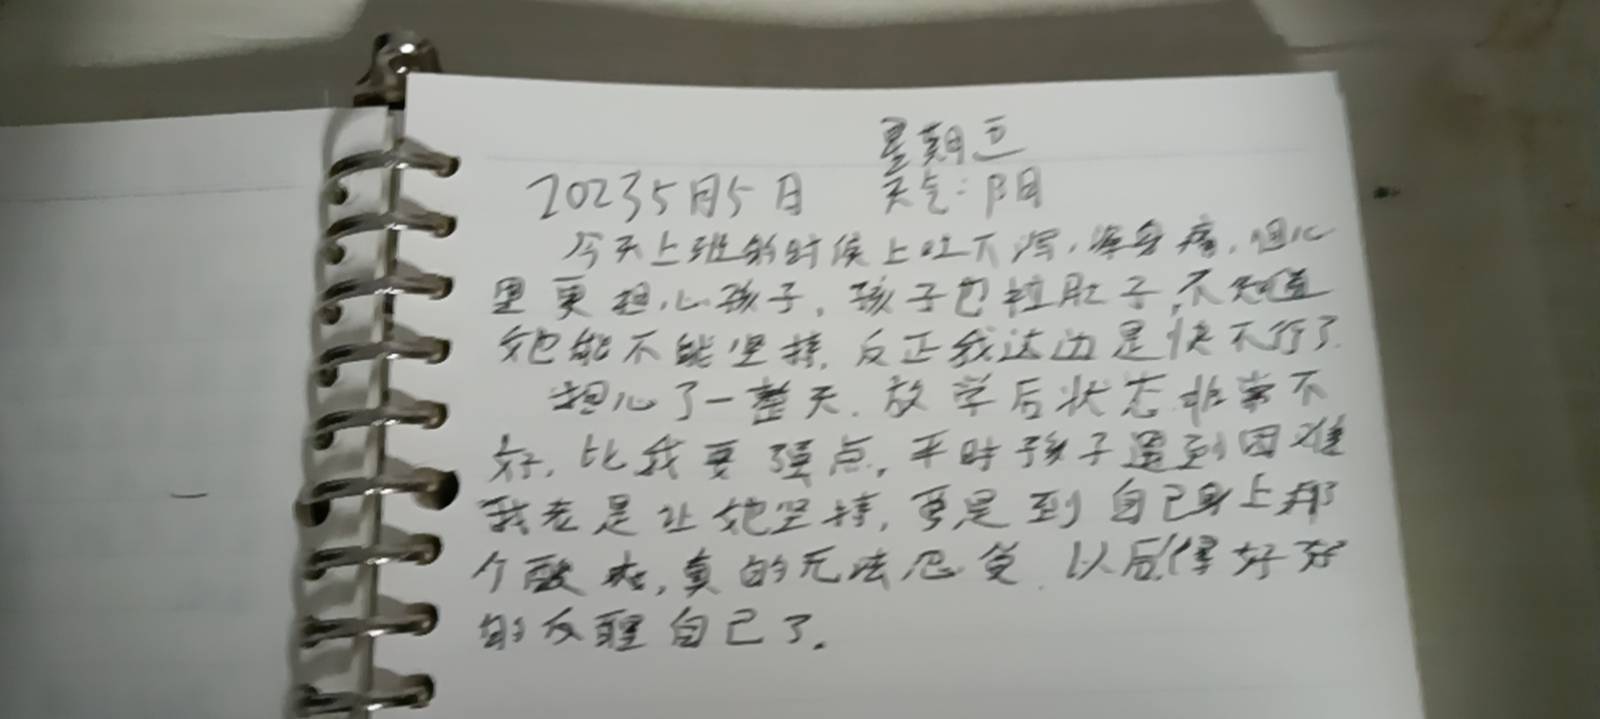 星期五
2023 5月5日 天气:阴
今天上班的时候上吐下泻,浑身疼,但心
里更担心孩子,孩子也拉肚子,不知道
她能不能坚持,反正我这边是快不行了.
担心了一整天.放学后状态非常不
好,比我要强点,平时孩子遇到困难
我老是让她坚持,要是到自己身上那
个酸爽,真的无法忍受.以后得好好
的反醒自己了.